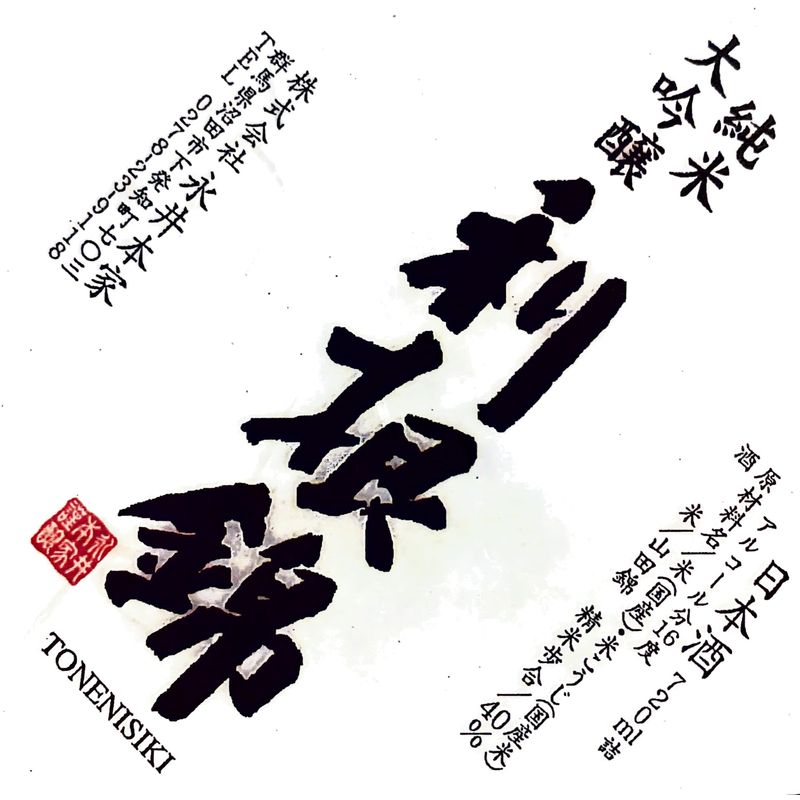 純米
大吟醸
利根錦
株式会社永井本家
群馬県沼田市下発知町七〇三
TEL 0278-23-9118
永井
本家
謹醸
TONENISIKI
日本酒 720ml詰
アルコール分16度
原材料名/米(国産)・米こうじ(国産米)
酒米/山田錦 精米歩合/40%